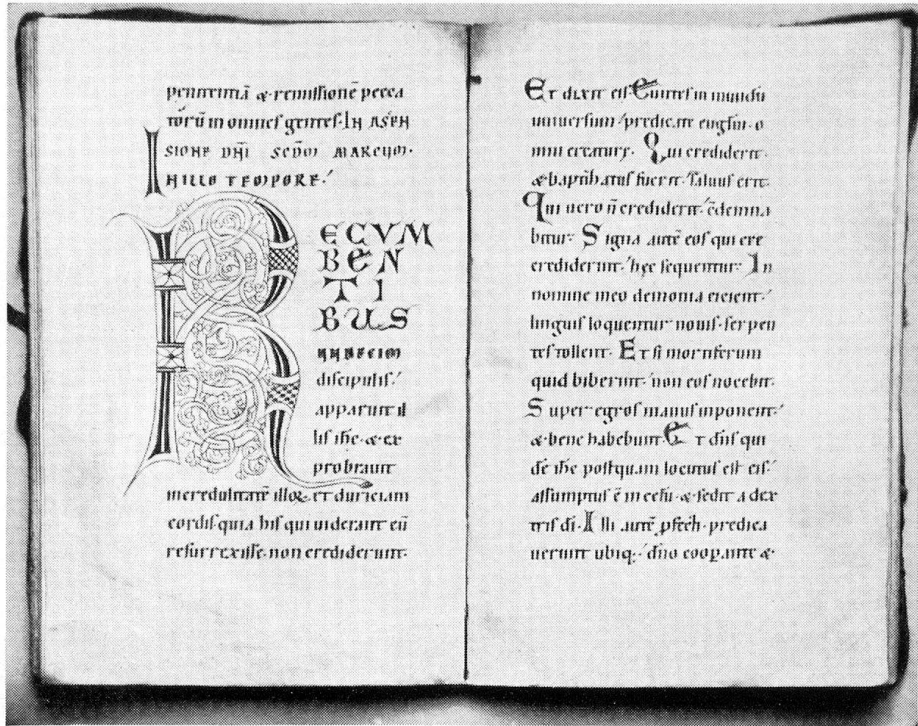 penitentiā & remissionē pecca
torū in omnes gentes. IN ASCEN
SIONE DN̄I SCD̄M MARCUM.
IN ILLO TEMPORE.
RECVM
BEN
TI
BUS
UNDECIM
discipulis.
apparuit il
lis ih̄c. & ex
probrauit
incredulitatē illoꝝ. et duriciam
cordis quia his qui uiderant eū
resurrexisse. non crediderunt.
Et dixit eis. Euntes in mundū
uniuersum / predicate eugl̄m. o
mni creaturȩ. Qui crediderit.
& baptizatus fuerit. saluus erit.
Qui uero n̄ crediderit. c̄demna
bitur. Signa autē eos qui cre
crediderint. hȩc sequentur. In
nomine meo demonia eicient.
linguis loquentur nouis. serpen
tes tollent. Et si mortiferum
quid biberint. non eos nocebit.
Super egros manus inponent.
& bene habebunt. Et dn̄s qui
dē ih̄c postquam locutus est eis.
assumptus ē in celū. & sedit a dex
tris dī. Illi autē pfecti. predica
uerunt ubiq;. dn̄o coopante &